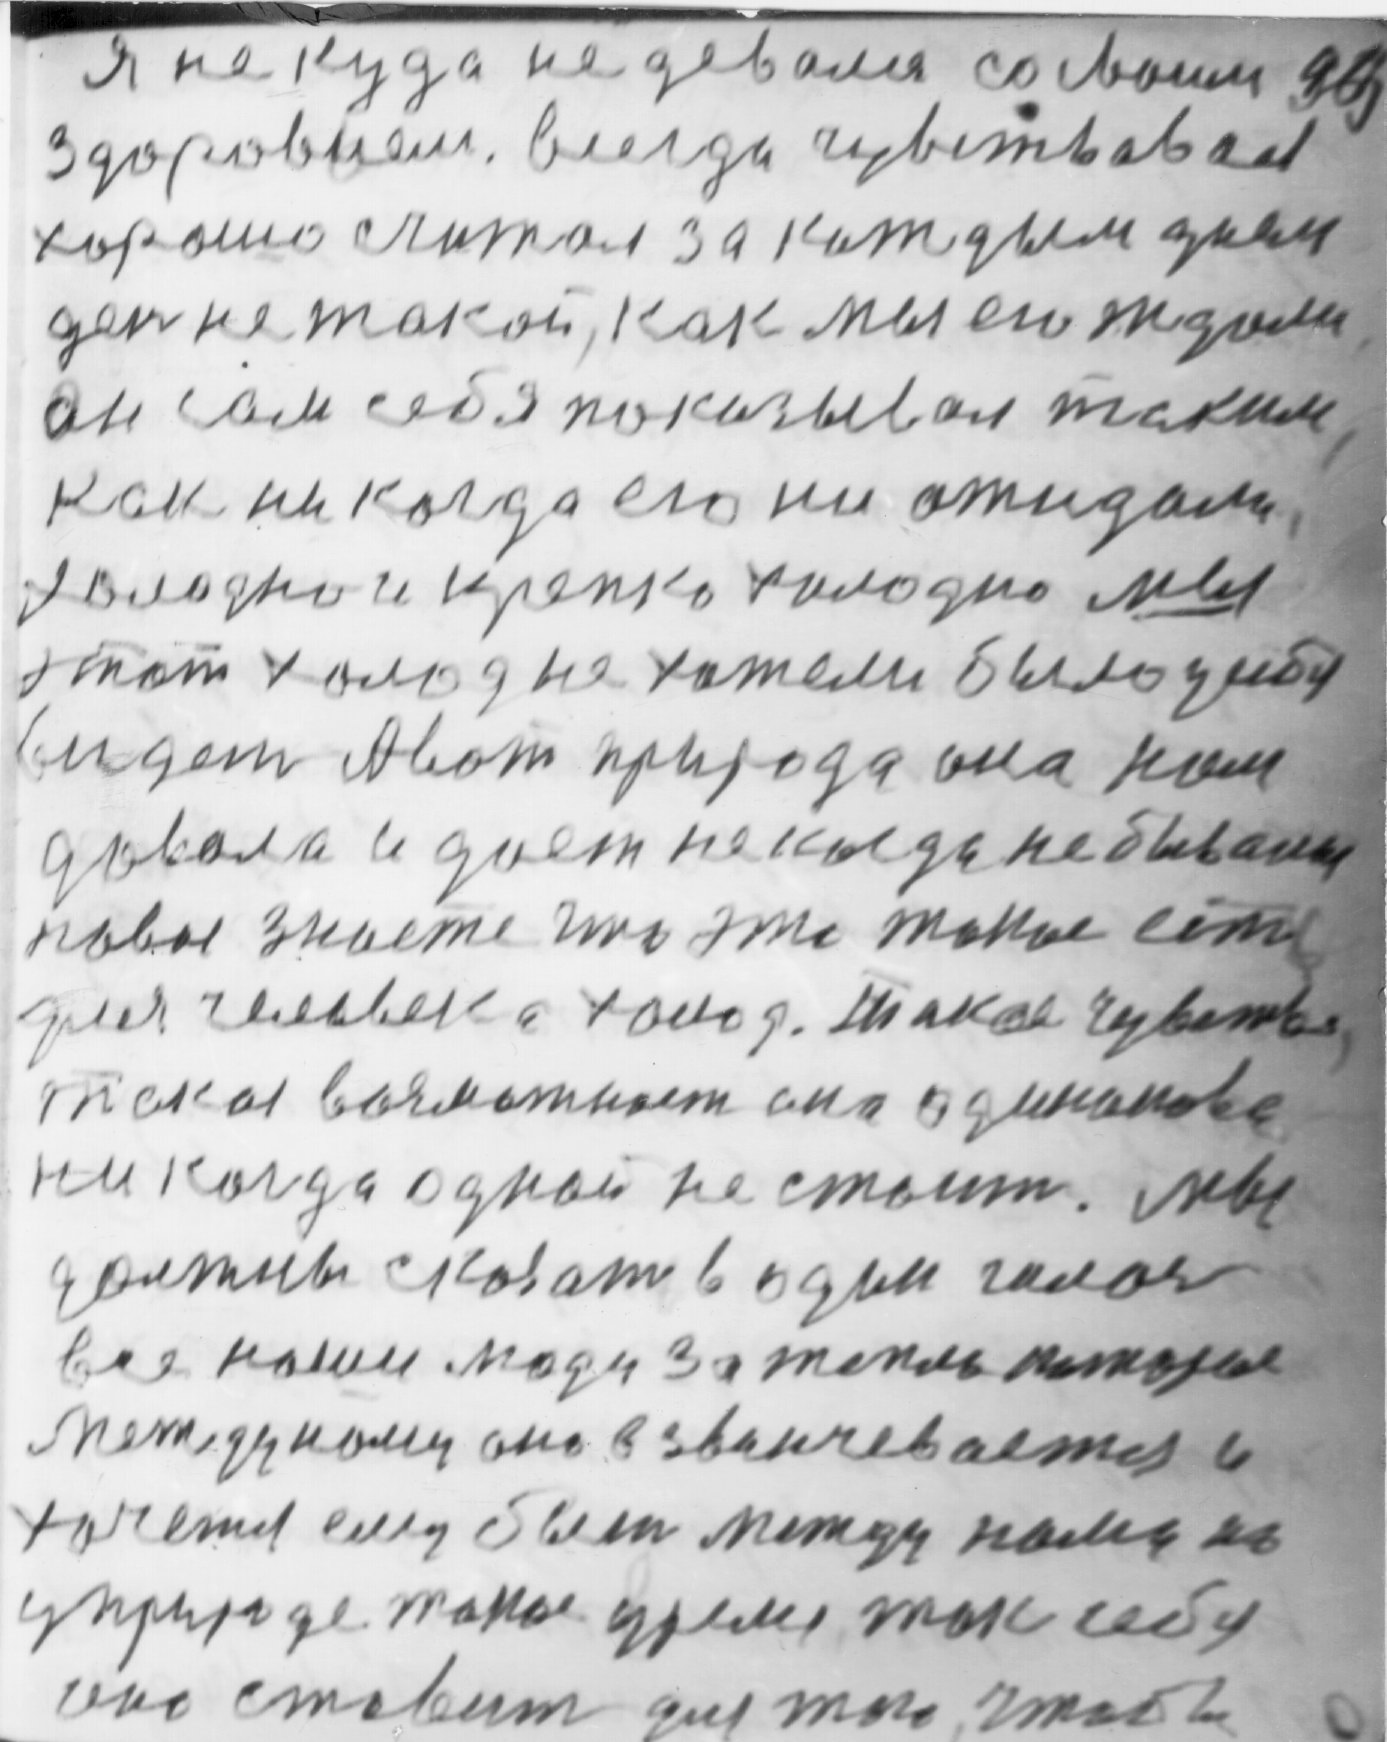 Я не куда не девался со своим
здоровием. Всегда чувствовал
хорошо считал за каждым днем
ден не такой, как мы его ждали,
Он сам себя показывал таким,
как ни когда его ни ожидали,
холодно и крепко холодно мы
этот холод не хотели было у себя
видет А вот природа она нам
давала и дает не когда не бывалая
новое знаете что это такое есть
для человека холод. Такое чувство,
такая возможност она одинакова
ни когда одной не стоит. Мы
должны сказат в один голос
все наши люди за тепло которое
между нами оно взвинчевается и
хочется ему быт между нами но
у природе такое время так себя
оно ставит для того, чтобы